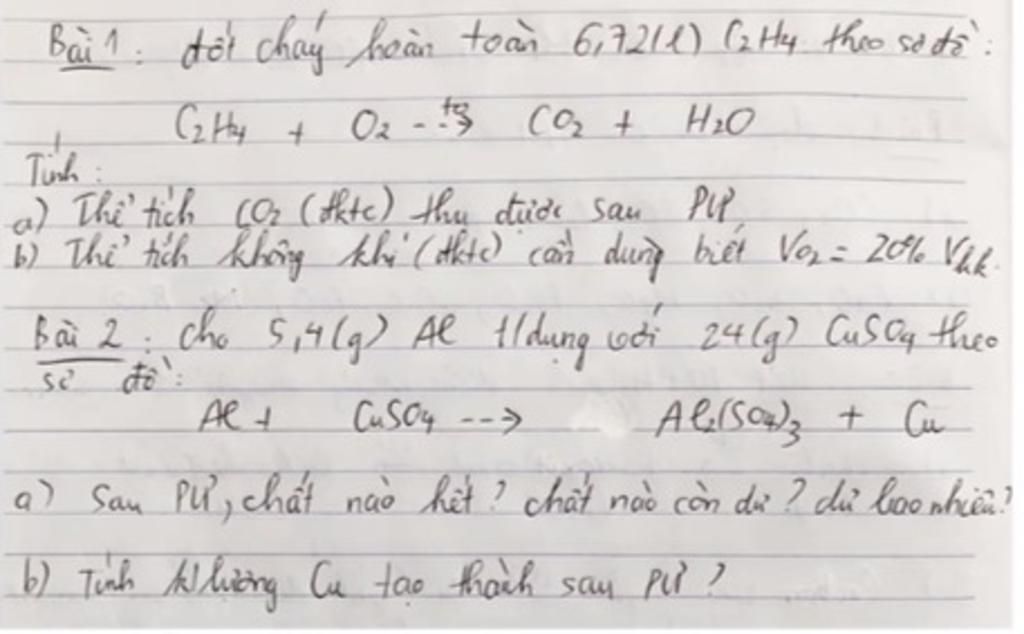 Bài 1: đốt cháy hoàn toàn 6,72(l) C2H4 theo sơ đồ:
C2H4 + O2 --t°-> CO2 + H2O
Tính:
a) Thể tích CO2 (đktc) thu được sau PƯ
b) Thể tích không khí (đktc) cần dùng biết VO2 = 20% Vkk.
Bài 2: cho 5,4(g) Al t/dụng với 24(g) CuSO4 theo
sơ đồ:
Al + CuSO4 ---> Al2(SO4)3 + Cu
a) Sau PƯ, chất nào hết? chất nào còn dư? dư bao nhiêu?
b) Tính k/lượng Cu tạo thành sau PƯ?